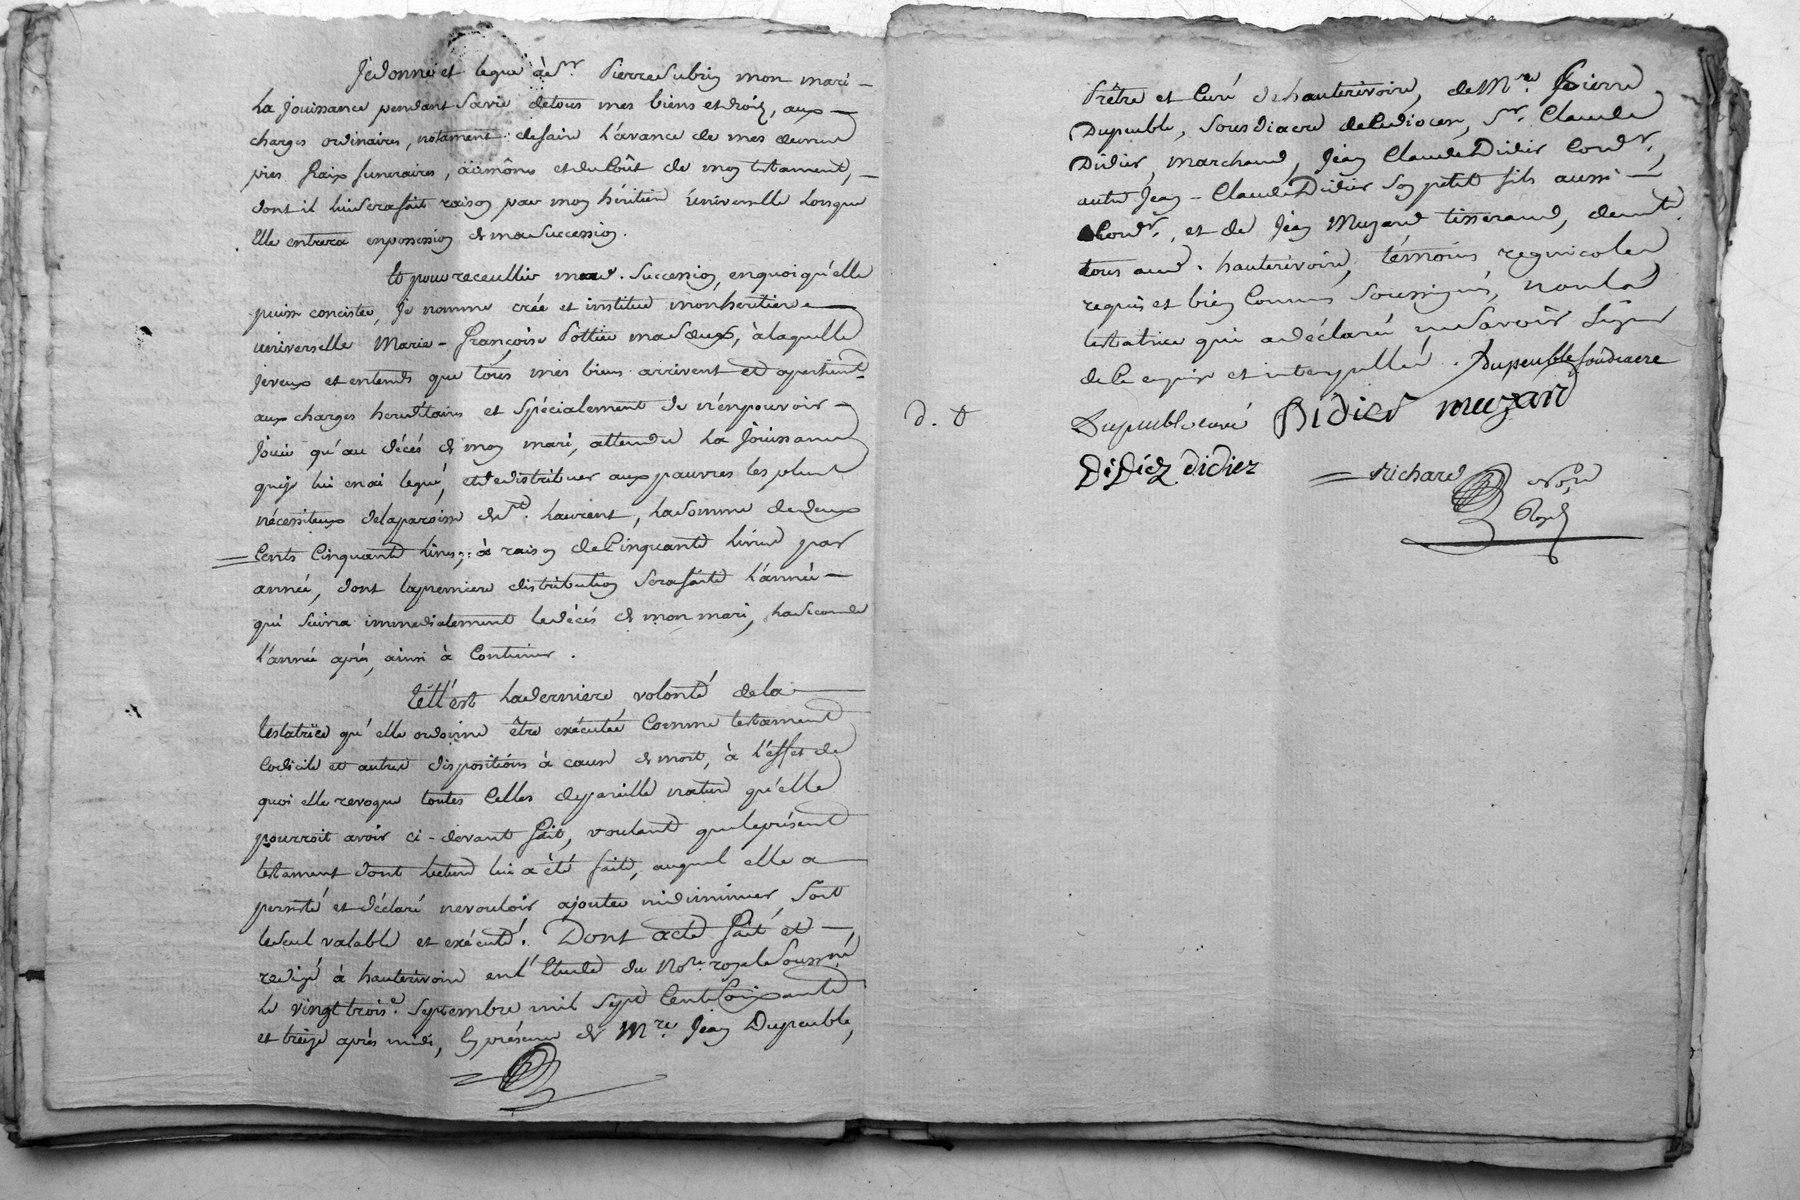 Je donne et legue à Sr. Pierre Subrin mon mari
La jouissance pendant sa vie de tous mes biens et droits, aux
charges ordinaires, notament de faire l'avance de mes œuvres
pies fraix funeraires, aumônes et du Coût de mon testament,
dont il lui sera fait raison par mon héritiere universelle lorsque
Elle entrera en possession de ma Succession.
Et pour receullir madte. Succession, en quoi qu'elle
puisse concister, je nomme crée et institue mon heritiere
universelle Marie-françoise Pottier ma sœur, à laquelle
je veux et entends que tous mes biens arrivent et apartiennt
aux charges hereditaires et Spécialement de n'en pouvoir
jouir qu'au décés de mon mari, attendu La Jouissance
que je lui en ai legué, et de distribuer aux pauvres les plus
nécessiteux de la paroisse de St. Laurent, La somme de deux
Cents Cinquante livres, à raison de Cinquante livres par
année, dont la premiere distribution sera faite L'année
qui suivra immediatement le décés de mon mari, La seconde
L'année aprés, ainsi à Continuer.
Telle est La derniere volonté de la
testatrice qu'elle ordonne être exécutée Comme testament
Codicile et autres dispositions à cause de mort, à l'effet de
quoi elle revoque toutes Celles de pareille nature qu'elle
pourroit avoir ci-devant fait, voulant que le présent
testament dont lecture lui a été faite, auquel elle a
persisté et déclaré ne vouloir ajouter ni diminuer, Soit
le seul valable et exécuté. Dont acte fait et
redigé à hauterivoire en l'Etude du Nore. royal Soussné
Le vingt trois. Septembre mil Sept Cent Soixante
et treize aprés midi, En présence de Mre. Jean Dupeuble,
Prêtre et Curé de hauterivoire, de Mre. Pierre
Dupeuble, Sousdiacre de Ce diocese, Sr. Claude
Didier, marchand, Jean Claude Didier Cordr.,
autre Jean-Claude Didier Son petit fils aussi
Cordr., et de Jean Muzard tisserand, demt.
tous aud. hauterivoire, témoins regnicoles
requis et bien Connus Soussignés, non la
testatrice qui a déclaré ne Savoir Signer
de Ce enquise et interpellée. Dupeuble Soudiacre
D. D Dupeuble curé Didier muzard
Didier didier
Richard Nore
Royal